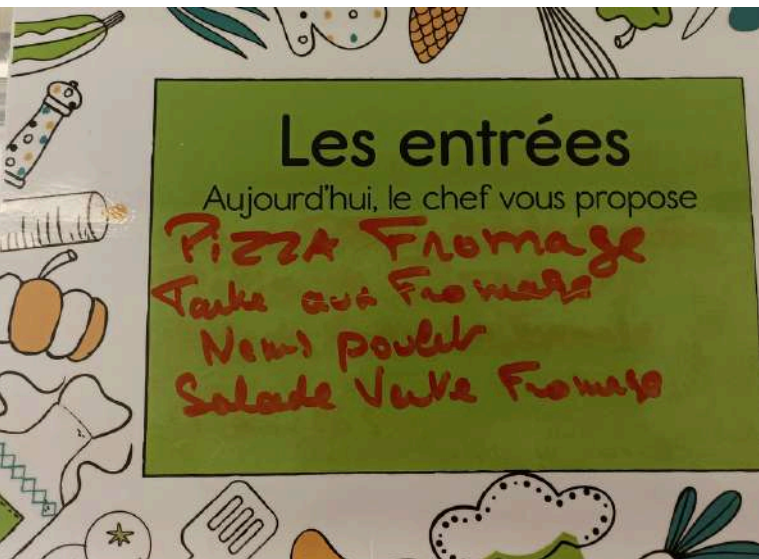 Les entrées
Aujourd'hui, le chef vous propose
PiZZA Fromage
Tarte aux Fromage
Nems poulet
Salade Verte Fromage